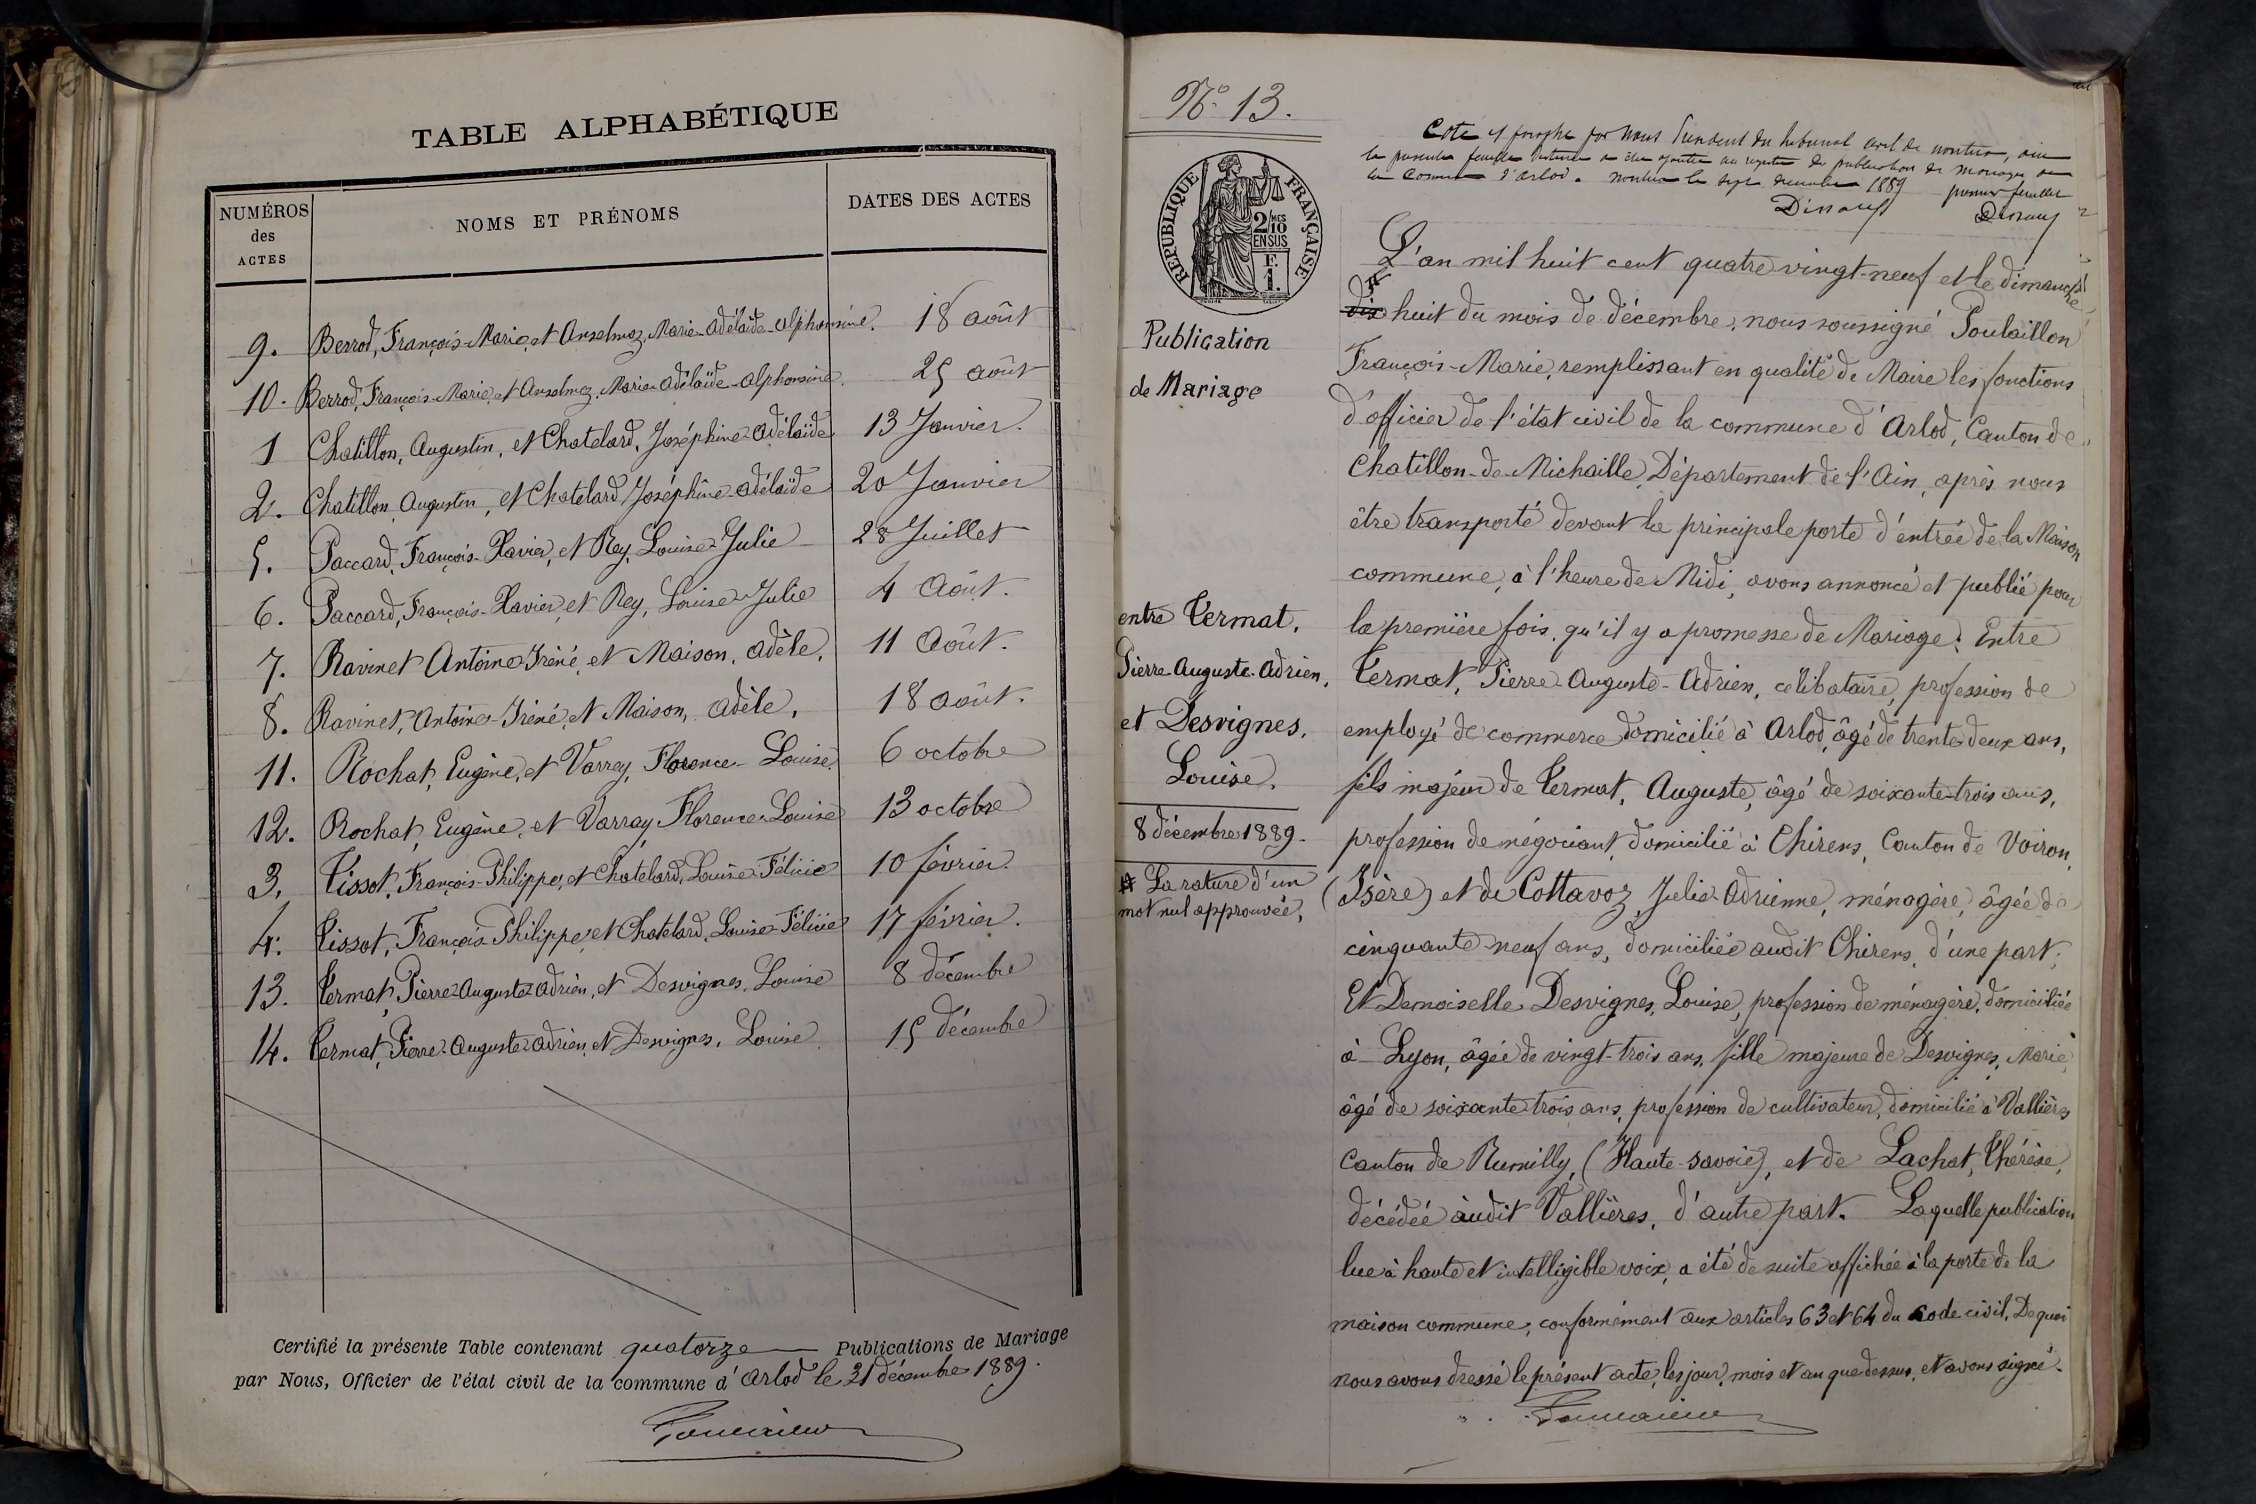 TABLE ALPHABÉTIQUE
NUMÉROS des ACTES
NOMS ET PRÉNOMS
DATES DES ACTES
9. Berrod, François-Marie, et Anselmoz, Marie-Adélaïde-Alphonsine. 18 août
10. Berrod, François-Marie, et Anselmoz, Marie-Adélaïde-Alphonsine. 25 août
1 Chatillon, Augustin, et Chatelard, Joséphine-Adélaïde 13 Janvier.
2. Chatillon, Augustin, et Chatelard, Joséphine-Adélaïde 20 Janvier
5. Paccard, François-Xavier, et Rey, Louise-Julie 28 Juillet
6. Paccard, François-Xavier, et Rey, Louise-Julie 4 Août.
7. Ravinet Antoine-Iréné, et Maison, Adèle, 11 Août.
8. Ravinet, Antoine-Iréné, et Maison, Adèle, 18 août.
11. Rochat, Eugène, et Varrey, Florence-Louise. 6 octobre
12. Rochat, Eugène, et Varray, Florence-Louise 13 octobre
3. Tissot, François-Philippe, et Chatelard, Louise-Félicie 10 février.
4. Tissot, François-Philippe, et Chatelard, Louise-Félicie 17 février.
13. Termat, Pierre-Auguste-Adrien, et Desvignes, Louise 8 décembre
14. Termat, Pierre-Auguste-Adrien, et Desvignes, Louise 15 décembre
Certifié la présente Table contenant quatorze Publications de Mariage
par Nous, Officier de l'état civil de la commune d'Arlod le 31 décembre 1889.
N° 13.
Coté et paraphé par Nous Président du tribunal civil de nantua, ain
la présente feuille destinée a être ajoutée au registre de publication de mariage de
la Commune d'Arlod. nantua le sept décembre 1889 premier feuillet
RÉPUBLIQUE FRANÇAISE
2/10 MES
EN SUS
F.
1.
Publication
de Mariage
entre Termat,
Pierre-Auguste-Adrien,
et Desvignes,
Louise.
8 décembre 1889.
# La rature d'un
mot nul approuvée,
L'an mil huit cent quatre-vingt-neuf et le dimanche
# dix huit du mois de décembre, nous soussigné Poulaillon
François-Marie, remplissant en qualité de Maire les fonctions
d'officier de l'état civil de la commune d'Arlod, Canton de
Chatillon-de-Michaille, Département de l'Ain, après nous
être transporté devant la principale porte d'entrée de la Maison
commune, à l'heure de Midi, avons annoncé et publié pour
la première fois, qu'il y a promesse de Mariage: Entre
Termat, Pierre-Auguste-Adrien, célibataire, profession de
employé de commerce domicilié à Arlod, âgé de trente-deux ans,
fils majeur de Termat, Auguste, âgé de soixante-trois ans,
profession de négociant, domicilié à Chirens, Canton de Voiron,
(Isère) et de Cottavoz, Julie-Adrienne, ménagère, âgée de
cinquante-neuf ans, domiciliée audit Chirens, d'une part;
Et Demoiselle Desvignes, Louise, profession de ménagère, domiciliée
à Lyon, âgée de vingt-trois ans, fille majeure de Desvignes, Marie,
âgé de soixante-trois ans, profession de cultivateur, domicilié à Vallières
Canton de Rumilly, (Haute-Savoie), et de Lachat, Thérèse,
décédée àudit Vallières, d'autre part. Laquelle publication
lue à haute et intelligible voix, a été de suite affichée à la porte de la
maison commune, conformément aux articles 63 et 64 du Code civil, De quoi
nous avons dressé le présent acte, les jour, mois et an que dessus, et avons signé.